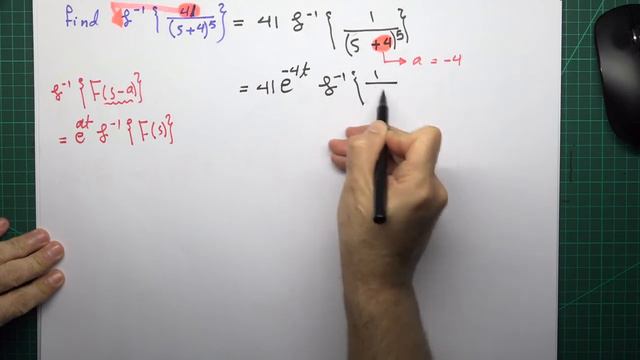 find ℒ⁻¹ { 41 / (s+4)⁵ } = 41 ℒ⁻¹ { 1 / (s+4)⁵ }
→ a = -4
ℒ⁻¹ { F(s-a) }
= e^{at} ℒ⁻¹ { F(s) }
= 41 e^{-4t} ℒ⁻¹ { 1 /